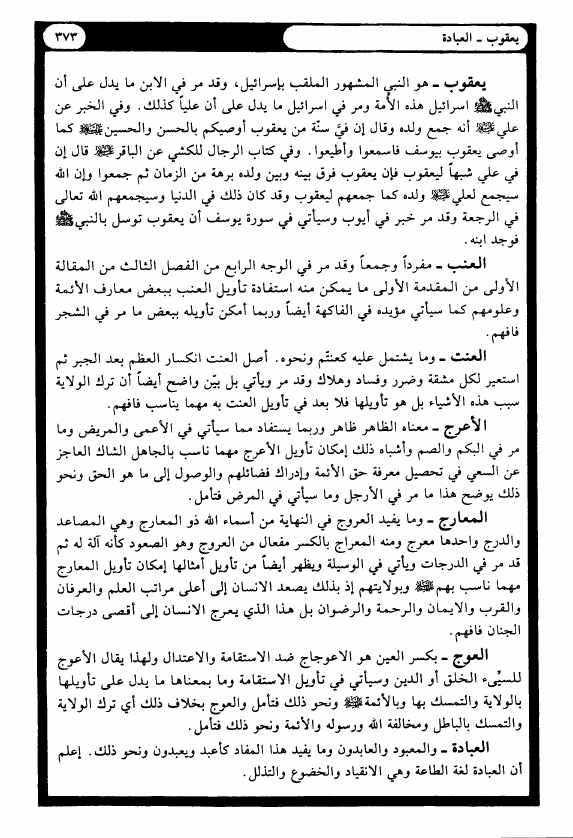 يعقوب - العبادة
٣٧٣
يعقوب - هو النبي المشهور الملقب بإسرائيل، وقد مر في الابن ما يدل على أن
النبي ﷺ اسرائيل هذه الأمة ومر في اسرائيل ما يدل على أن علياً كذلك. وفي الخبر عن
علي أنه جمع ولده وقال إن فيَّ سنّة من يعقوب أوصيكم بالحسن والحسين كما
أوصى يعقوب بيوسف فاسمعوا وأطيعوا. وفي كتاب الرجال للكشي عن الباقر قال إن
في علي شبهاً ليعقوب فإن يعقوب فرق بينه وبين ولده برهة من الزمان ثم جمعوا وإن الله
سيجمع لعلي ولده كما جمعهم ليعقوب وقد كان ذلك في الدنيا وسيجمعهم الله تعالى
في الرجعة وقد مر خبر في أيوب وسيأتي في سورة يوسف أن يعقوب توسل بالنبي ﷺ
فوجد ابنه.
العنب - مفرداً وجمعاً وقد مر في الوجه الرابع من الفصل الثالث من المقالة
الأولى من المقدمة الأولى ما يمكن منه استفادة تأويل العنب ببعض معارف الأئمة
وعلومهم كما سيأتي مؤيده في الفاكهة أيضاً وربما أمكن تأويله ببعض ما مر في الشجر
فافهم.
العنت - وما يشتمل عليه كعنتّم ونحوه. أصل العنت انكسار العظم بعد الجبر ثم
استعير لكل مشقة وضرر وفساد وهلاك وقد مر ويأتي بل بيّن واضح أيضاً أن ترك الولاية
سبب هذه الأشياء بل هو تأويلها فلا بعد في تأويل العنت به مهما يناسب فافهم.
الأعرج - معناه الظاهر ظاهر وربما يستفاد مما سيأتي في الأعمى والمريض وما
مر في البكم والصم وأشباه ذلك إمكان تأويل الأعرج مهما ناسب بالجاهل الشاك العاجز
عن السعي في تحصيل معرفة حق الأئمة وإدراك فضائلهم والوصول إلى ما هو الحق ونحو
ذلك يوضح هذا ما مر في الأرجل وما سيأتي في المرض فتأمل.
المعارج - وما يفيد العروج في النهاية من أسماء الله ذو المعارج وهي المصاعد
والدرج واحدها معرج ومنه المعراج بالكسر مفعال من العروج وهو الصعود كأنه آلة له ثم
قد مر في الدرجات ويأتي في الوسيلة ويظهر أيضاً من تأويل أمثالها إمكان تأويل المعارج
مهما ناسب بهم وبولايتهم إذ بذلك يصعد الانسان إلى أعلى مراتب العلم والعرفان
والقرب والايمان والرحمة والرضوان بل هذا الذي يعرج الانسان إلى أقصى درجات
الجنان فافهم.
العوج - بكسر العين هو الاعوجاج ضد الاستقامة والاعتدال ولهذا يقال الأعوج
للسيِّىء الخلق أو الدين وسيأتي في تأويل الاستقامة وما بمعناها ما يدل على تأويلها
بالولاية والتمسك بها وبالأئمة ونحو ذلك فتأمل والعوج بخلاف ذلك أي ترك الولاية
والتمسك بالباطل ومخالفة الله ورسوله والأئمة ونحو ذلك فتأمل.
العبادة - والمعبود والعابدون وما يفيد هذا المفاد كأعبد ويعبدون ونحو ذلك. إعلم
أن العبادة لغة الطاعة وهي الانقياد والخضوع والتذلل.